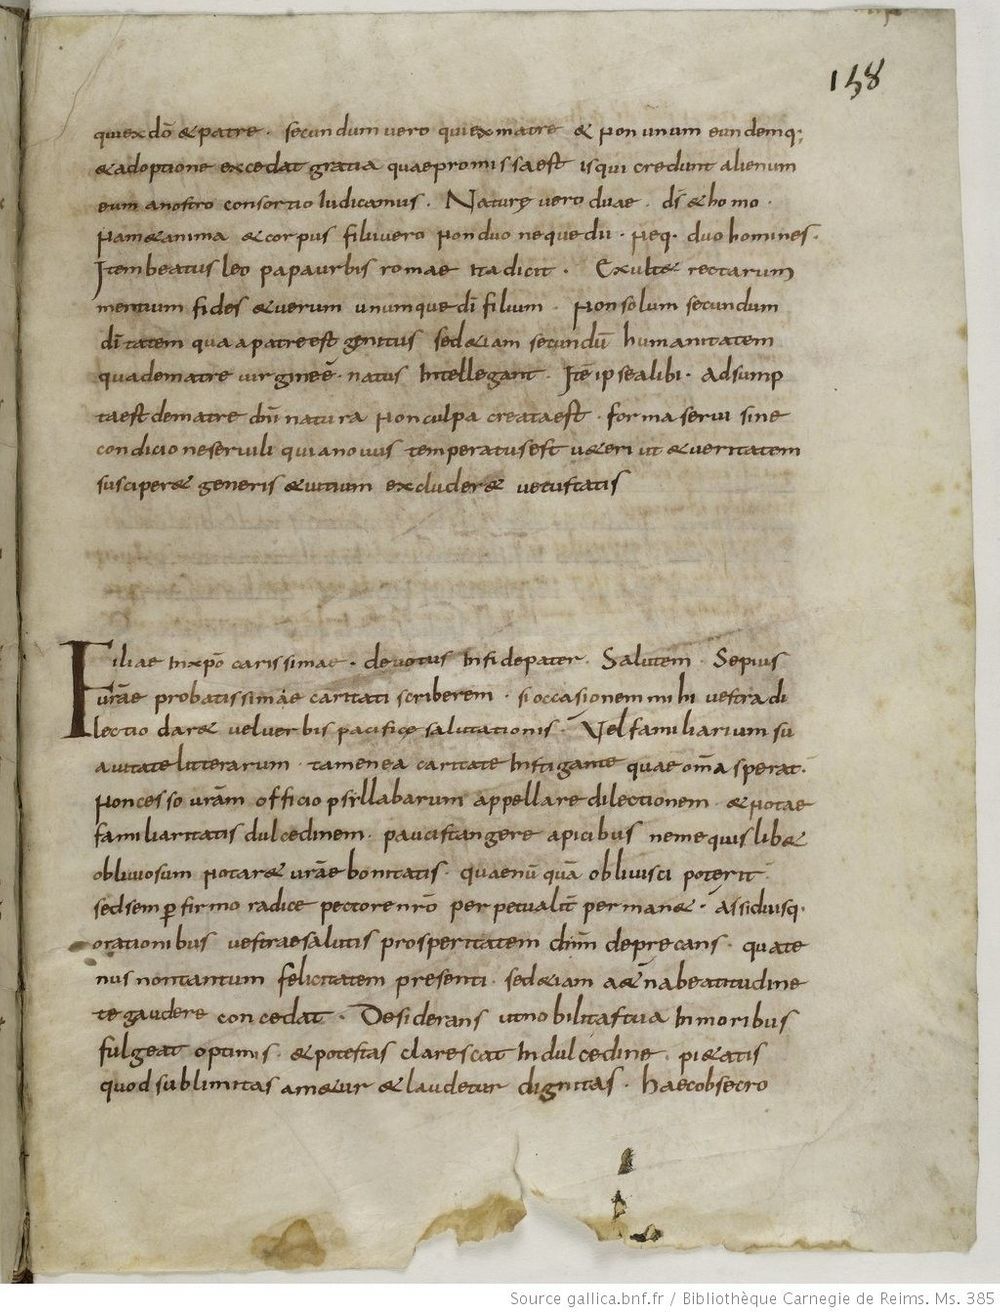 158
qui ex dō & patre · secundum vero qui ex matre & non unum eundemq;
& adoptione excedat gratia quae promissa est is qui credunt alienum
eum a nostro consortio Iudicamus · Naturę vero duae · ds̄ & homo ·
Nam & anima & corpus filii vero non duo neque dii · Neq · duo homines ·
Item beatus leo papa urbis romae ita dicit · Exult& rectarum
mentium fides & verum unumque dī filium · Non solum secundum
dītatem qua a patre est genitus sed &iam secundū humanitatem
qua de matre virgineē · natus Intellegant · Itē ipse alibi · Adsump
ta est de matre dnī natura non culpa creata est · forma servi sine
condicione servili quia novus temperatus est u&eri ut & veritatem
susciper& generis & vitium excluder& vetustatis
Filiae In xp̄o carissimae · devotus In fide pater · Salutem · Sepius
urāe probatissimāe caritati scriberem · si occasionem mihi vestra di
lectio dar& vel verbis pacificę salutationis · Vel familiarium su
avitate litterarum · tamen ea caritate Instigante quae om̄a sperat ·
Non cesso urām officio psyllabarum appellare dilectionem · & Notae
familiaritatis dulcedinem · paucis tangere apicibus ne me quislib&
obliviosum notar& urāe bonitatis · quae nū quā oblivisci poterit ·
sed semꝑ firmo radice pectore nrō perpetualit̄ perman& · Assiduisq ·
orationibus vestrae salutis prosperitatem dnm̄ deprecans · quate
nus non tantum felicitatem presenti · sed &iam a&n̄a beatitudine
te gaudere concedat · Desiderans ut nobilitas tua In moribus
fulgeat optimis · & potestas clarescat In dulcedine · pi&atis
quod sublimitas am&ur & laudetur dignitas · haec obsecro
Source gallica.bnf.fr / Bibliothèque Carnegie de Reims. Ms. 385